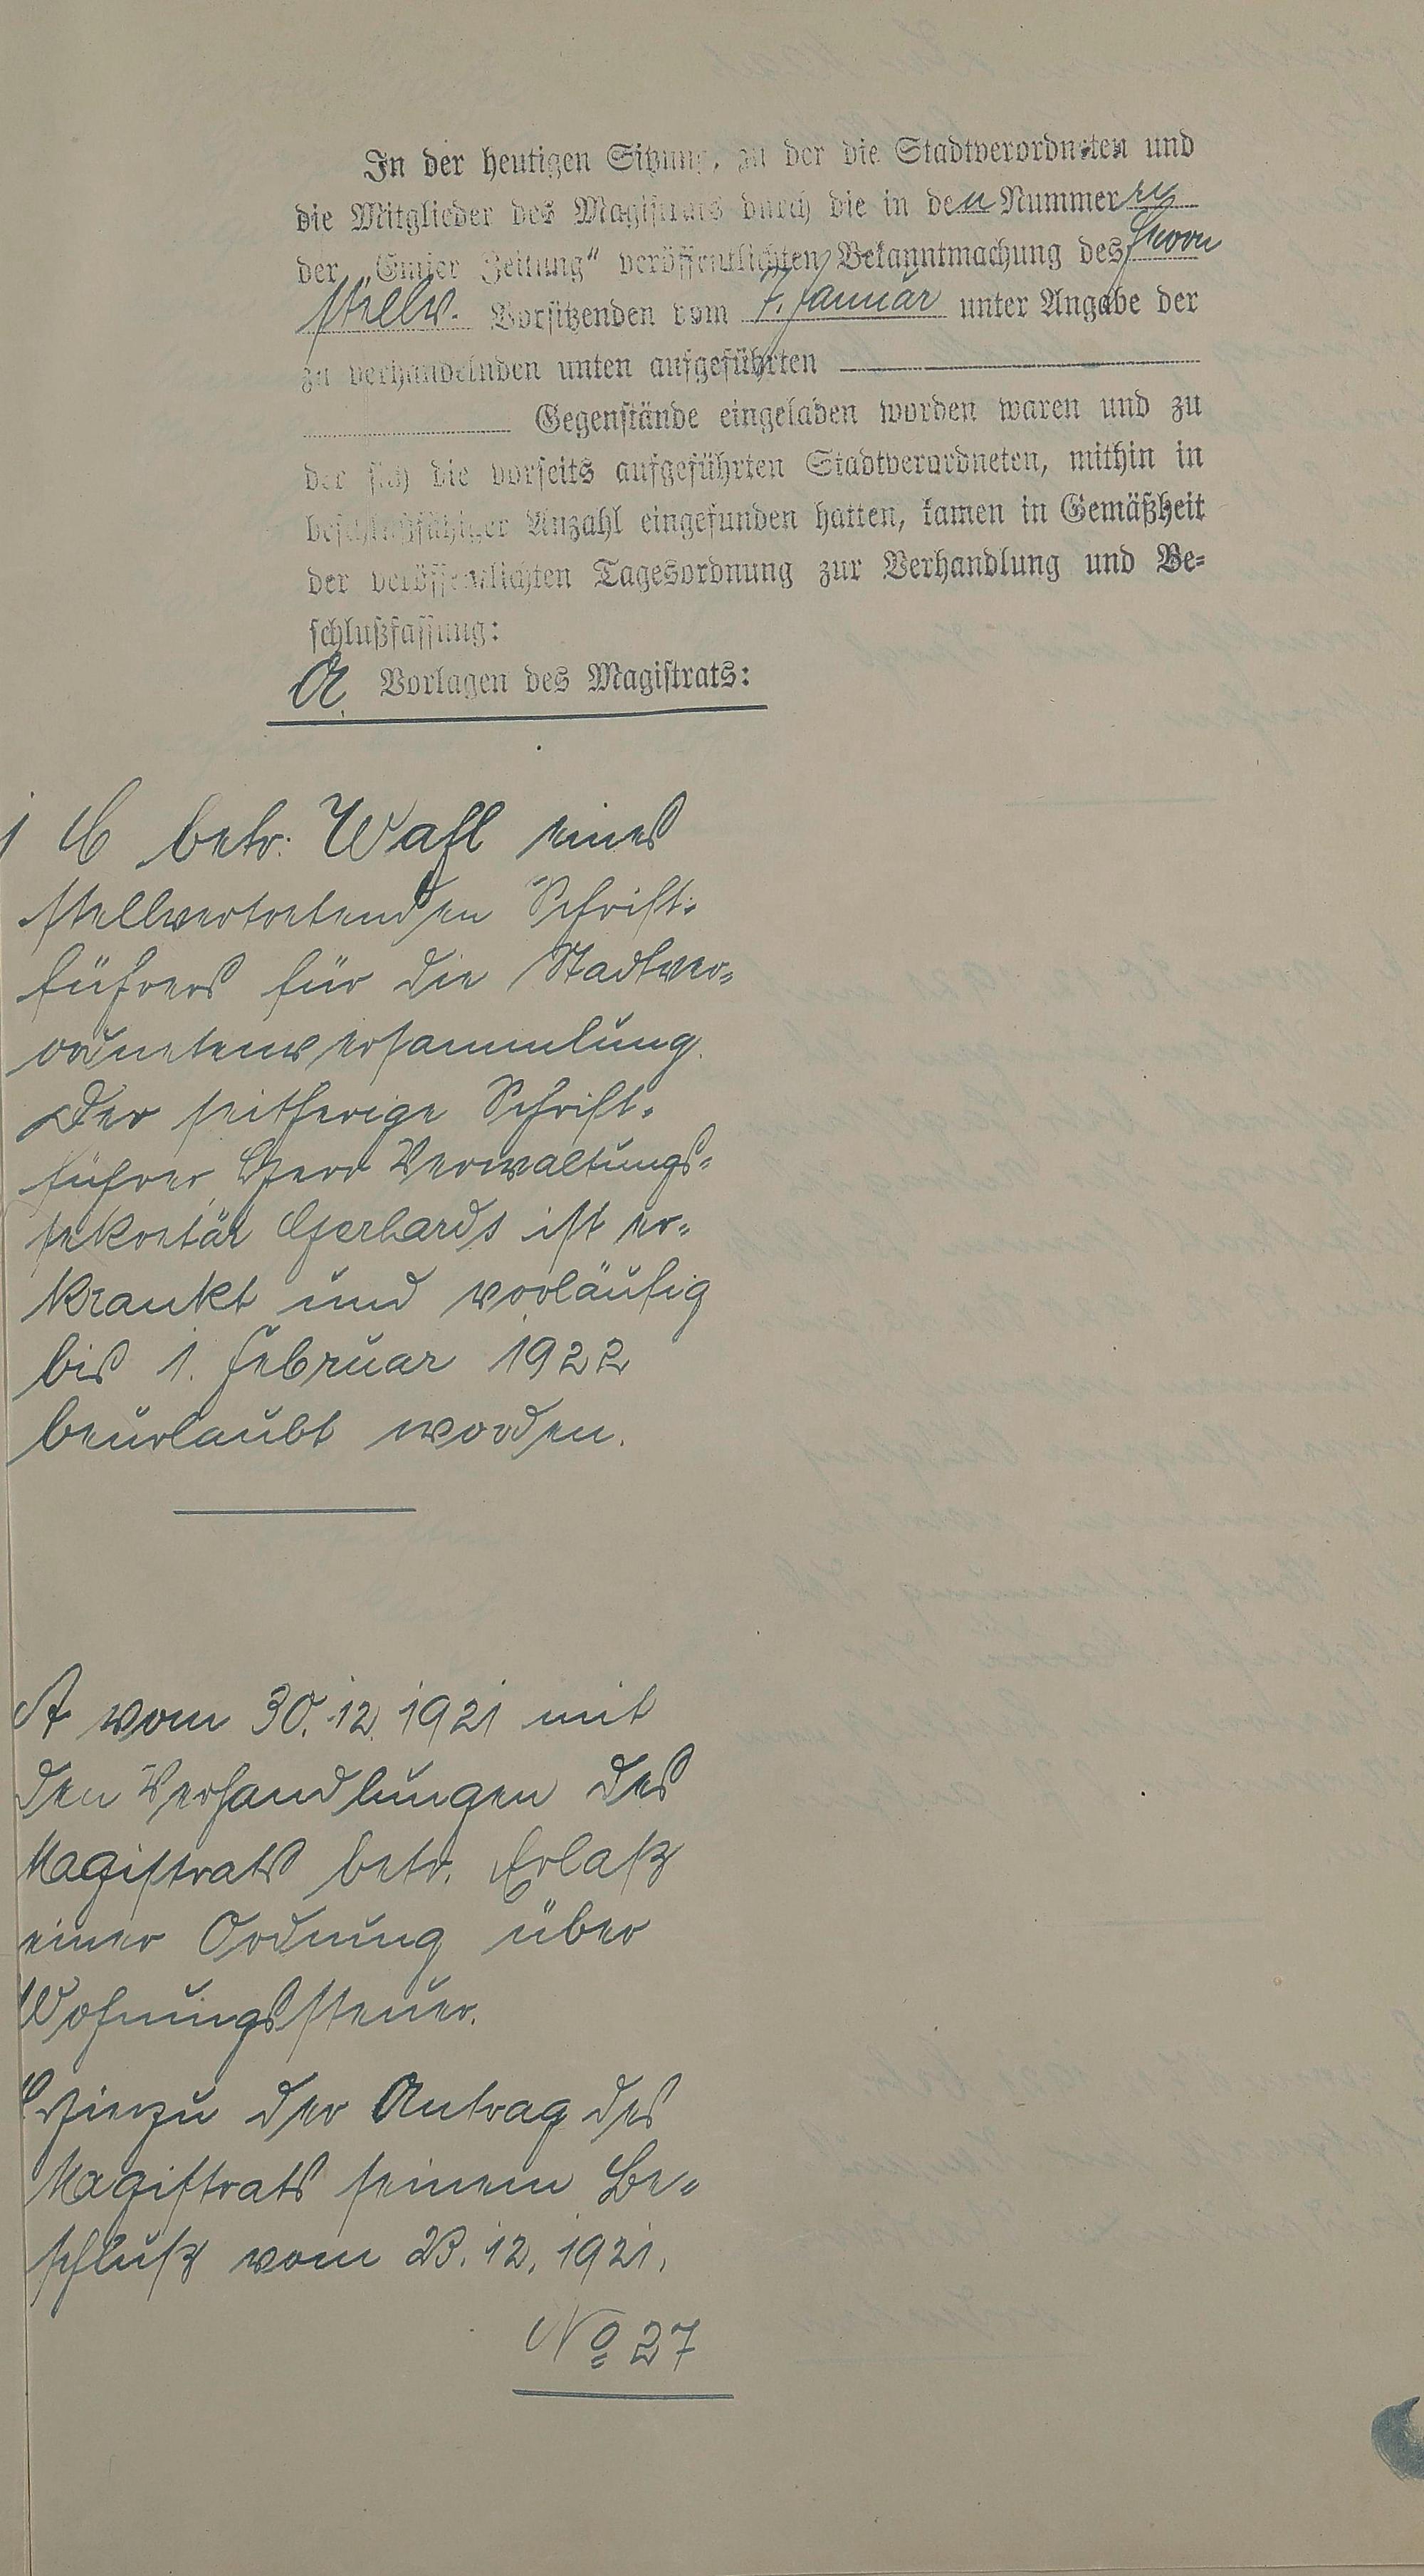 In der heutigen Sitzung, zu der die Stadtverordneten und
die Mitglieder des Magistrats durch die in den Nummern
der „Emser Zeitung“ veröffentlichten Bekanntmachung des Herrn
stellv. Vorsitzenden vom 7. Januar unter Angabe der
zu verhandelnden unten aufgeführten
Gegenstände eingeladen worden waren und zu
der sich die vorseits aufgeführten Stadtverordneten, mithin in
beschlußfähiger Anzahl eingefunden hatten, kamen in Gemäßheit
der veröffentlichten Tagesordnung zur Verhandlung und Be-
schlußfassung:
A. Vorlagen des Magistrats:
betr. Wahl eines
stellvertretenden Schrift-
führers für die Stadtver-
ordnetenversammlung.
Der seitherige Schrift-
führer Herr Verwaltungs-
sekretär Gerhards ist er-
krankt und vorläufig
bis 1. Februar 1922
beurlaubt worden.
vom 30.12.1921 mit
den Verhandlungen des
Magistrats betr. Erlaß
einer Ordnung über
Wohnungssteuer.
Hierzu der Antrag des
Magistrats seinem Be-
schluß vom 23.12.1921.
No 27